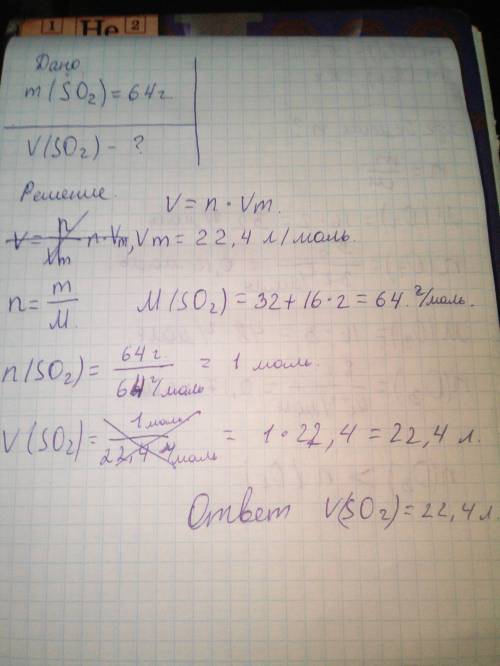 1 He 2
Дано
m(SO₂) = 64 г
V(SO₂) - ?
Решение.
V = n · Vm.
V = n/Vm n · Vm, Vm = 22,4 л/моль.
n = m/M. M(SO₂) = 32 + 16 · 2 = 64 г/моль.
n(SO₂) = 64 г./64 г/моль = 1 моль.
V(SO₂) = 1 моль/22,4 л/моль = 1 · 22,4 = 22,4 л.
Ответ V(SO₂) = 22,4 л